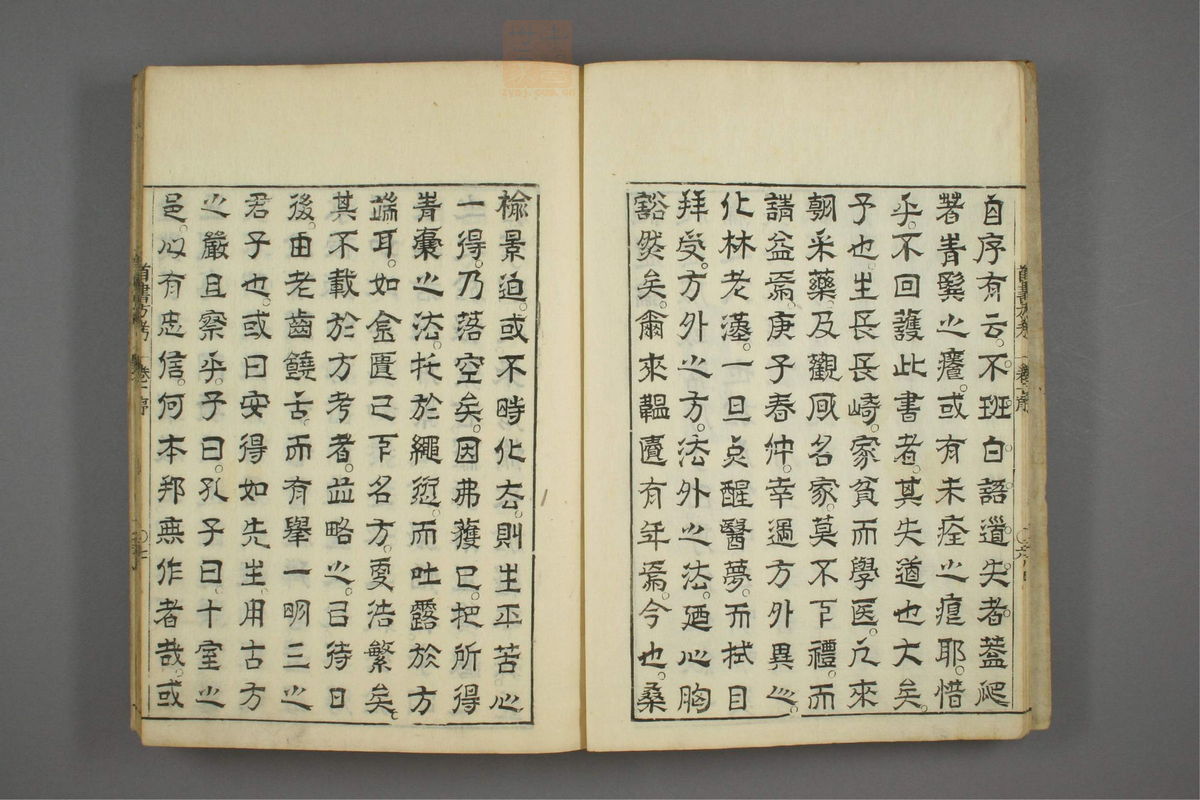 自序有云。不班白語道失者。蓋爬
著青鬢之癢。或有未痊之疽耶。惜
乎。不回護此書者。其失道也大矣。
予也生長長崎。家貧而學医。凢來
朝采藥及觀風名家。莫不下禮。而
請益焉。庚子春仲。幸遇方外異人。
化林老漢。一旦点醒醫夢。而拭目
拜受。方外之方。法外之法。廼心胸
豁然矣。爾來韞匵有年焉。今也。桑
榆景迫。或不時化去。則生平苦心
一二得。乃落空矣。因弗獲已。把所得
青囊之法。托於繩愆。而吐露於方
端耳。如金匱已下名方。更浩繁矣。
其不載於方考者。並略之。吕待日
後。由老齒饒舌。而有舉一明三之
君子也。或曰安得如先生。用古方
之嚴且察乎。予曰。孔子曰。十室之
邑。必有忠信。何本邦無作者哉。或